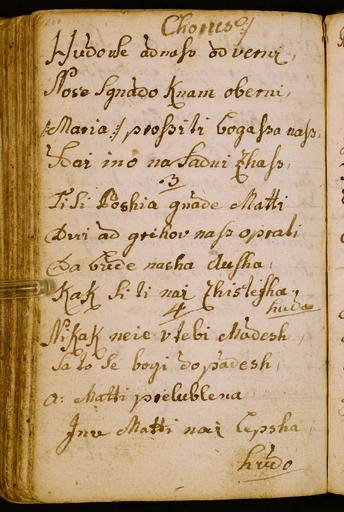 Chorus :/
Hudobe ad nass odverni,
Nose Sgnado k nam oberni,
/: Maria :/ prossi ti bogassa nass,
Dai ino na Sadni zhass,
3
Ti Si Boshia gnade Matti
Ouri ad grehov nass oprati
Da bude nasha dusha,
Kak Si ti nai zhistesha,
huda
4
Nikak neie v tebi Madesh,
Sa to Se bogi dopadesh,
O: Matti prelublena
Inu Matti nai lepsha
hudo